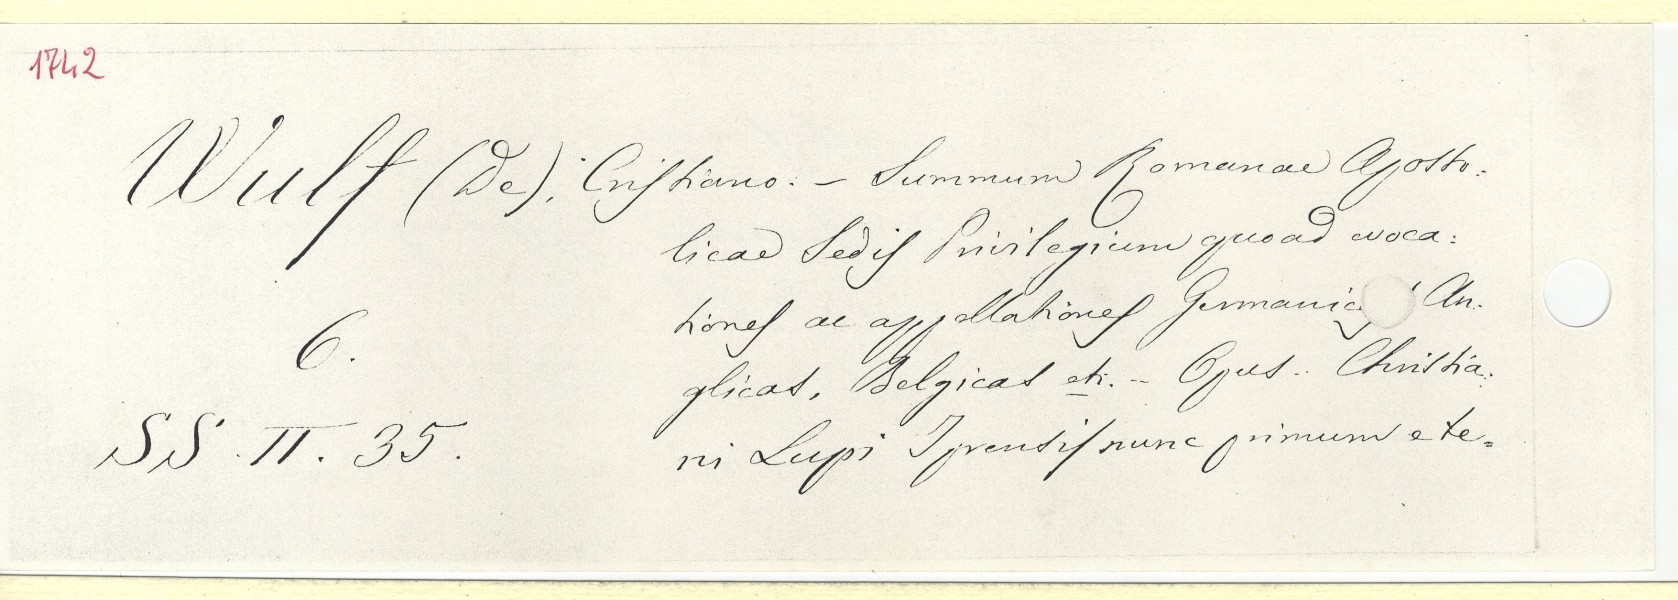 1742
Wulf (De), Cristiano. – Summum Romanae Aposto:
licae Sedis Privilegium quoad evoca:
tiones ac appellationes An:
6.
glicas, Belgicas etc. – Opus.. Christia:
SS. II. 35.
ni Lupi Iprensis nunc primum e te=